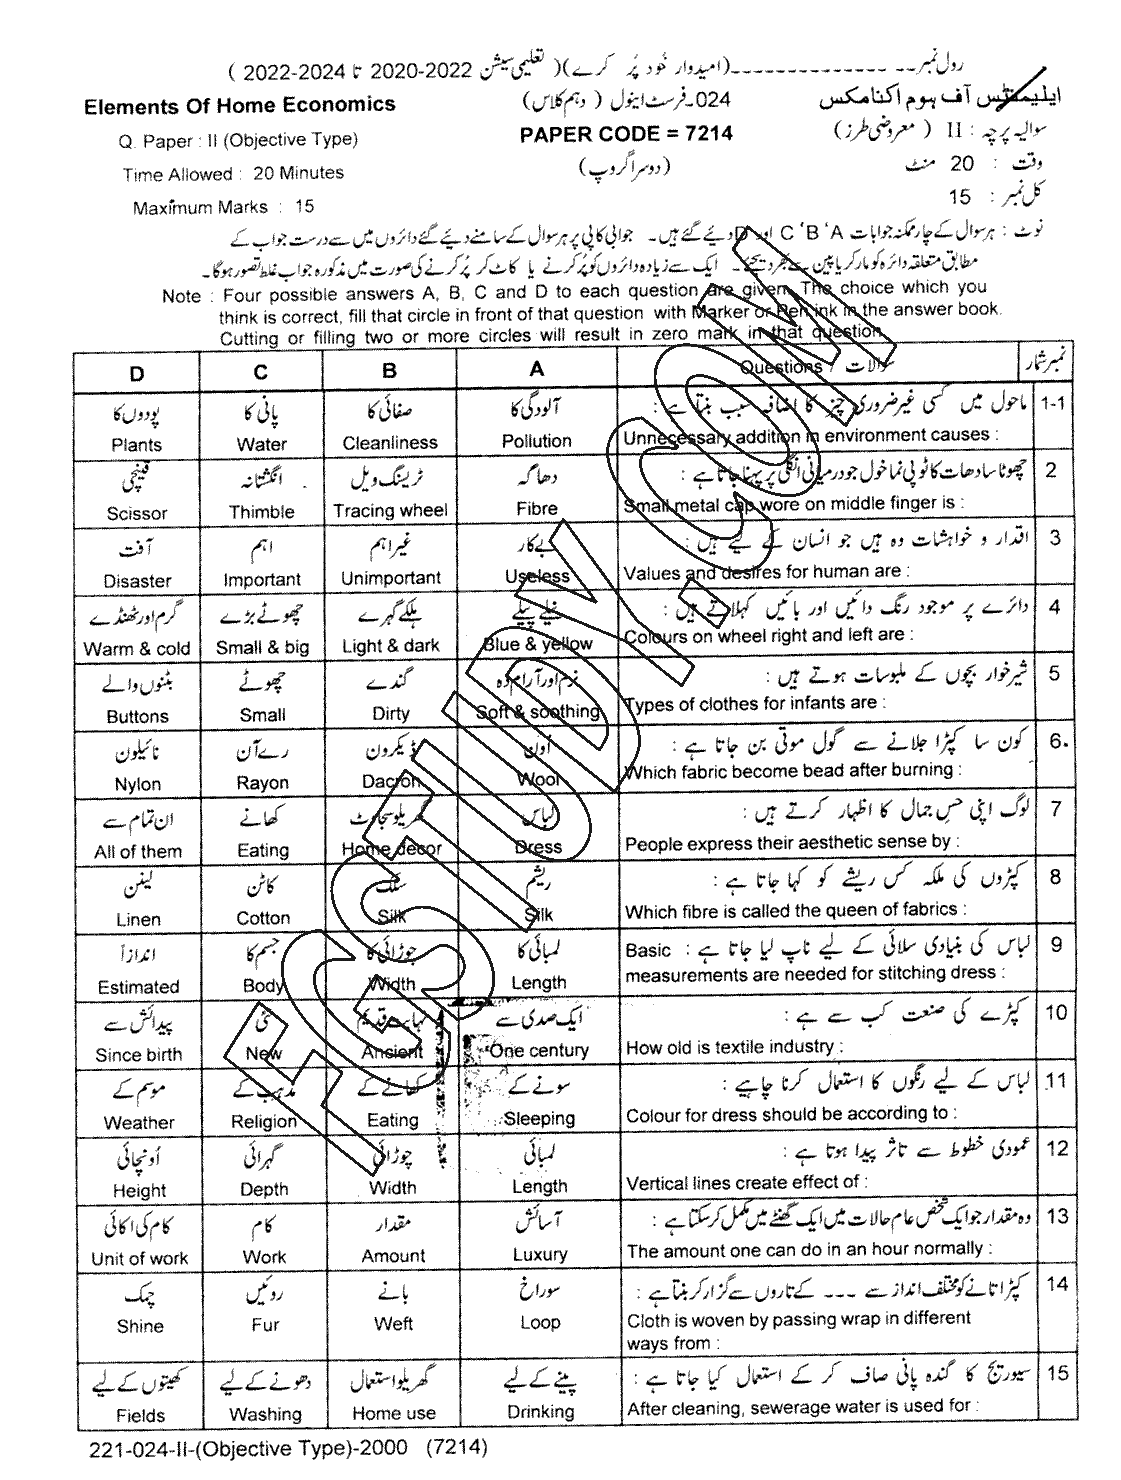 رول نمبر ـــــــــــــ (امیدوار خود پُر کرے) ( تعلیمی سیشن 2022-2020 تا 2024-2022 )
ایلیمنٹس آف ہوم اکنامکس
024۔ فرسٹ اینول ( دہم کلاس)
Elements Of Home Economics
سوالیہ پرچہ : II ( معروضی طرز)
PAPER CODE = 7214
Q. Paper : II (Objective Type)
وقت : 20 منٹ
(دوسرا گروپ)
Time Allowed : 20 Minutes
کل نمبر : 15
Maximum Marks : 15
نوٹ : ہر سوال کے چار ممکنہ جوابات A ‘B ‘C اور D دیئے گئے ہیں۔ جوابی کاپی پر ہر سوال کے سامنے دیئے گئے دائروں میں سے درست جواب کے
مطابق متعلقہ دائرہ کو مارکر یا پین سے بھر دیجئے۔ ایک سے زیادہ دائروں کو پُر کرنے یا کاٹ کر پُر کرنے کی صورت میں مذکورہ جواب غلط تصور ہوگا۔
Note : Four possible answers A, B, C and D to each question are given. The choice which you
think is correct, fill that circle in front of that question with Marker or Pen ink in the answer book.
Cutting or filling two or more circles will result in zero mark in that question.
D C B A Questions / سوالات نمبر شمار
پودوں کا پانی کا صفائی کا آلودگی کا ماحول میں کسی غیر ضروری چیز کا اضافہ سبب بنتا ہے : 1-1
Plants Water Cleanliness Pollution Unnecessary addition in environment causes :
قینچی انگشتانہ ٹریسنگ ویل دھاگہ چھوٹا سا دھات کا ٹوپی نما خول جو درمیانی انگلی پر پہنا جاتا ہے : 2
Scissor Thimble Tracing wheel Fibre Small metal cap wore on middle finger is :
آفت اہم غیر اہم بے کار اقدار و خواہشات وہ ہیں جو انسان کے لیے ہیں : 3
Disaster Important Unimportant Useless Values and desires for human are :
گرم اور ٹھنڈے چھوٹے بڑے ہلکے گہرے نیلے پیلے دائرے پر موجود رنگ دائیں اور بائیں کہلاتے ہیں : 4
Warm & cold Small & big Light & dark Blue & yellow Colours on wheel right and left are :
بٹنوں والے چھوٹے گندے نرم اور آرام دہ شیر خوار بچوں کے ملبوسات ہوتے ہیں : 5
Buttons Small Dirty Soft & soothing Types of clothes for infants are :
نائیلون رے آن ڈیکرون اُون کون سا کپڑا جلانے سے گول موتی بن جاتا ہے : 6.
Nylon Rayon Dacron Wool Which fabric become bead after burning :
ان تمام سے کھانے گھریلو سجاوٹ لباس لوگ اپنی حس جمال کا اظہار کرتے ہیں : 7
All of them Eating Home decor Dress People express their aesthetic sense by :
لینن کاٹن سلک ریشم کپڑوں کی ملکہ کس ریشے کو کہا جاتا ہے : 8
Linen Cotton Silk Silk Which fibre is called the queen of fabrics :
اندازاً جسم کا چوڑائی کا لمبائی کا Basic لباس کی بنیادی سلائی کے لیے ناپ لیا جاتا ہے : 9
Estimated Body Width Length measurements are needed for stitching dress :
پیدائش سے نئی نہایت قدیم ایک صدی سے کپڑے کی صنعت کب سے ہے : 10
Since birth New Ancient One century How old is textile industry :
موسم کے مذہب کے کھانے کے سونے کے لباس کے لیے رنگوں کا استعمال کرنا چاہیے : 11
Weather Religion Eating Sleeping Colour for dress should be according to :
اُونچائی گہرائی چوڑائی لمبائی عمودی خطوط سے تاثر پیدا ہوتا ہے : 12
Height Depth Width Length Vertical lines create effect of :
کام کی اکائی کام مقدار آسائش وہ مقدار جو ایک شخص عام حالات میں ایک گھنٹے میں مکمل کر سکتا ہے : 13
Unit of work Work Amount Luxury The amount one can do in an hour normally :
چمک روئیں بانے سوراخ کپڑا تانے کو مختلف انداز سے ۔۔۔ کے تاروں سے گزار کر بنتا ہے : 14
Shine Fur Weft Loop Cloth is woven by passing wrap in different
ways from :
کھیتوں کے لیے دھونے کے لیے گھریلو استعمال پینے کے لیے سیوریج کا گندہ پانی صاف کر کے استعمال کیا جاتا ہے : 15
Fields Washing Home use Drinking After cleaning, sewerage water is used for :
221-024-II-(Objective Type)-2000 (7214)